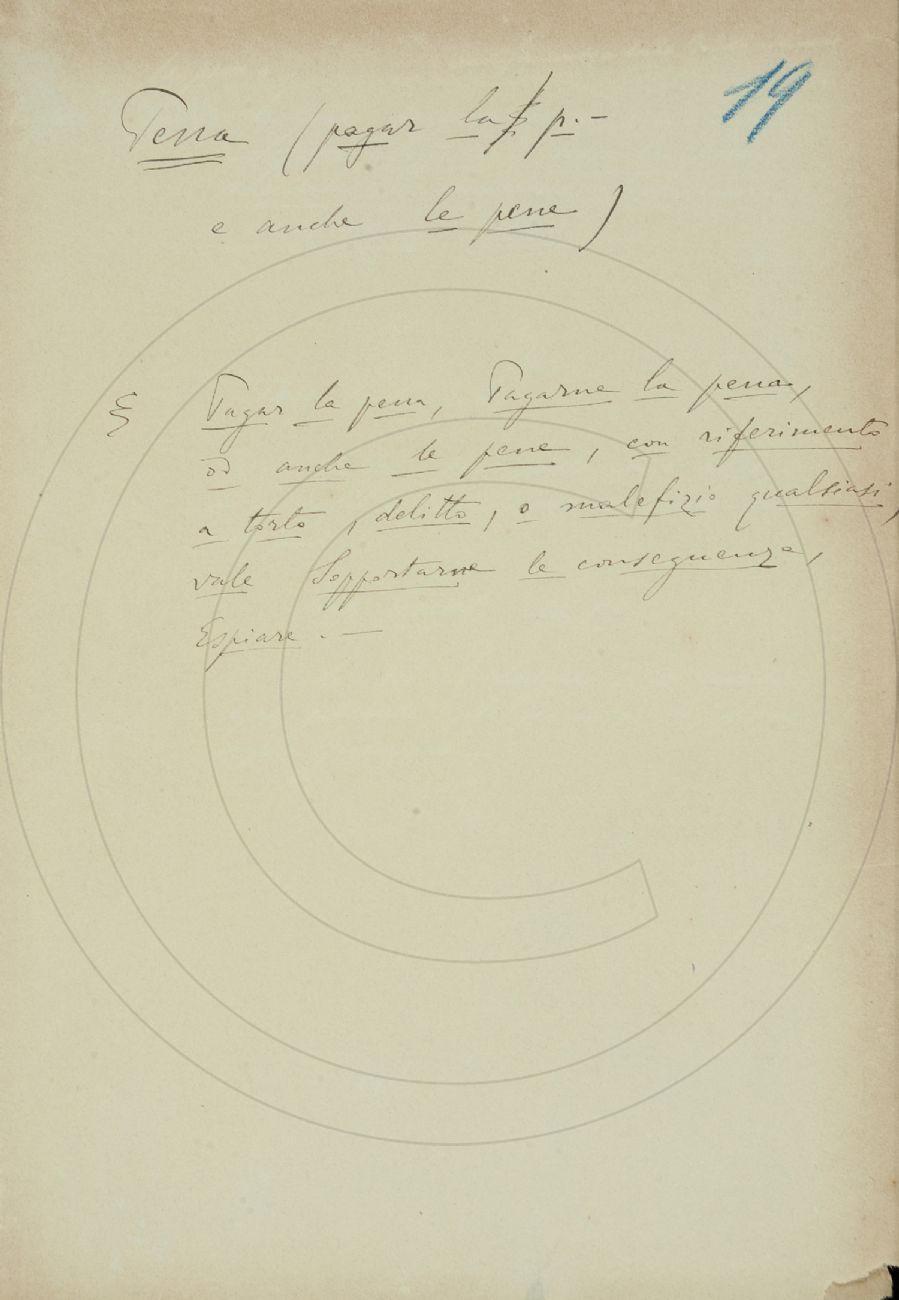 19
Pena (pagar la p.-
e anche le pene)
§ Pagar la pena, Pagarne la pena,
od anche le pene, con riferimento
a torto, delitto, o malefizio qualsiasi,
vale Sopportarne le conseguenze,
Espiare. —